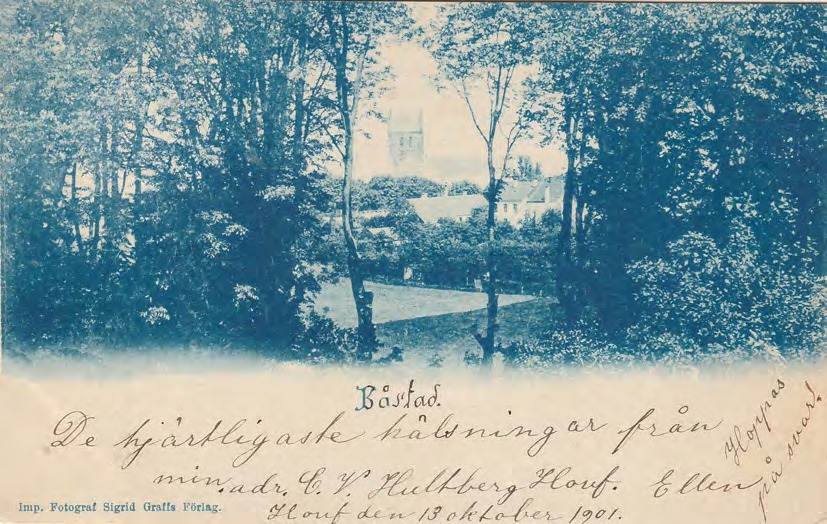 Båstad.
De hjärtligaste hälsningar från
min. adr. C. V. Hultberg Houf. Ellen
Houf den 13 oktober 1901.
Hoppas
på svar!
Imp. Fotograf Sigrid Graffs Förlag.